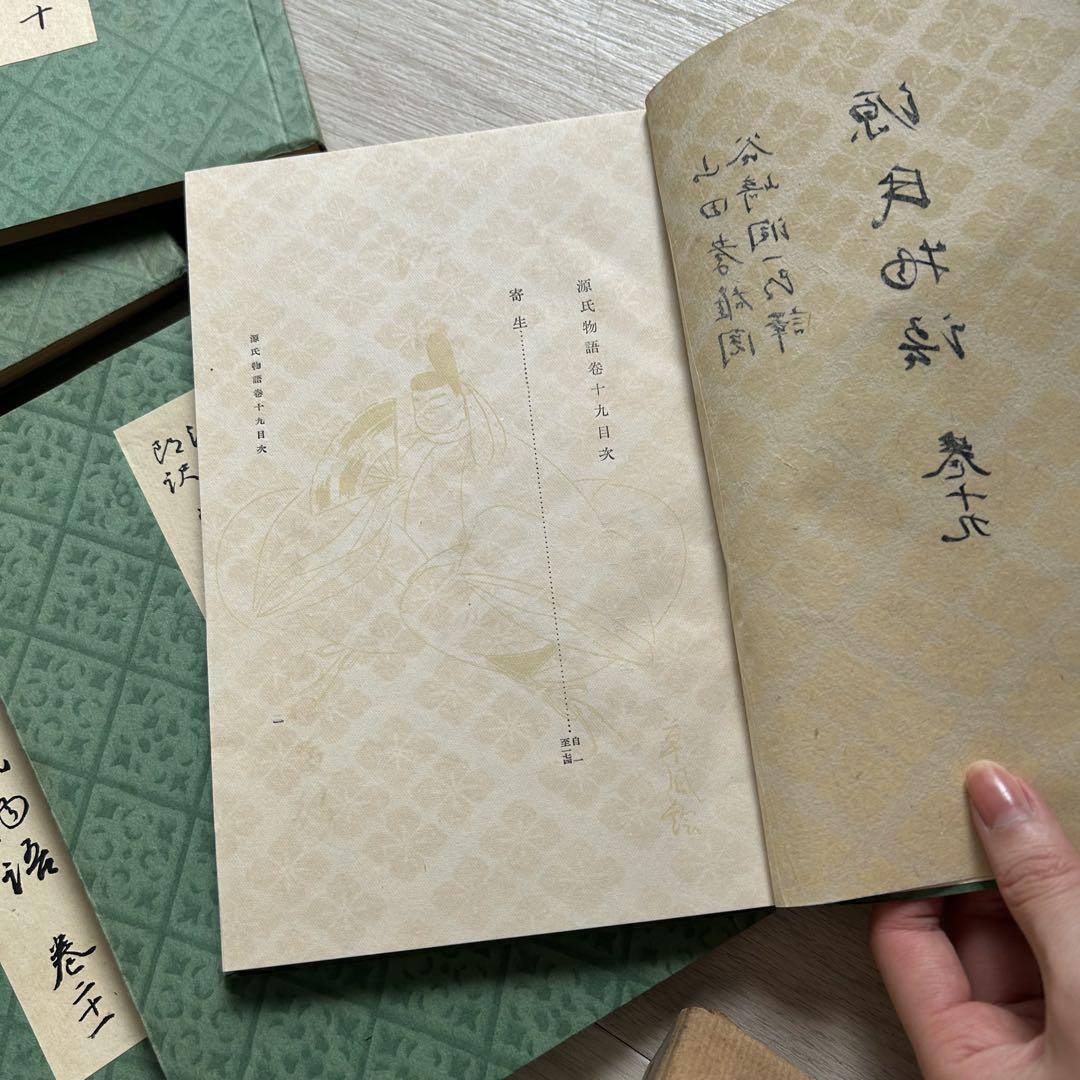 源氏物語 巻十九
谷崎潤一郎譯
山田孝雄閲
源氏物語卷十九目次
寄生
自一
至一七四
源氏物語卷十九目次
一
草風絵
十
物語 巻二十一